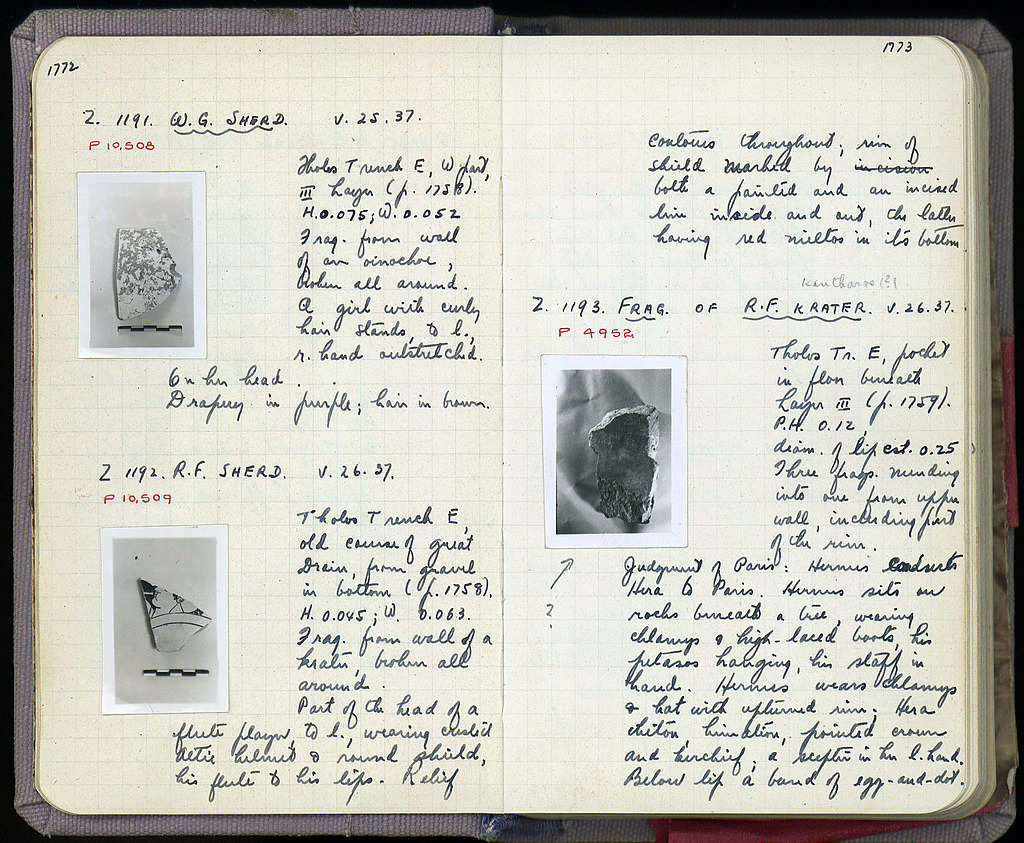 1772
Z. 1191. W.G. SHERD. V. 25. 37.
P 10,508
Tholos Trench E, W part,
III Layer (p. 1758).
H. 0.075; W. 0.052
Frag. from wall
of an oinochoe,
broken all around.
A girl with curly
hair stands, to l.,
r. hand outstretched.
On her head . .
Drapery in purple; hair in brown.
Z 1192. R.F. SHERD. V. 26. 37.
P 10,509
Tholos Trench E,
old course of Great
Drain, from gravel
in bottom (p. 1758).
H. 0.045; W. 0.063.
Frag. from wall of a
krater, broken all
around.
Part of the head of a
flute player to l., wearing crested
Attic helmet & round shield,
his flute to his lips. Relief
1773
contours throughout; rim of
shield marked by incision
both a painted and an incised
line inside and out, the latter
having red miltos in its bottom.
kantharos (?)
Z. 1193. FRAG. OF R.F. KRATER. V. 26. 37.
P 4952
Tholos Tr. E, pocket
in floor beneath
Layer III (p. 1759).
P.H. 0.12,
diam. of lip est. 0.25
Three frags. mending
into one from upper
wall, including part
of the rim.
Judgment of Paris: Hermes conducts
Hera to Paris. Hermes sits on
rocks beneath a tree, wearing
chlamys & high-laced boots, his
petasos hanging, his staff in
hand. Hermes wears chlamys
& hat with upturned rim; Hera
chiton, himation, pointed crown
and kerchief, a scepter in her l. hand.
Below lip a band of egg-and-dot.
?